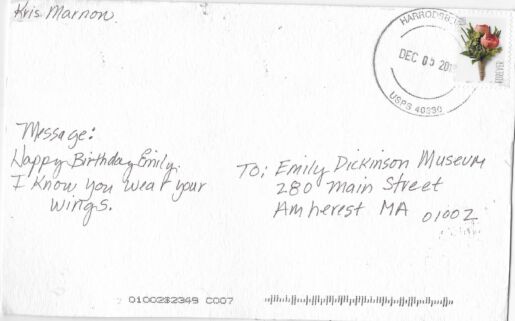 Kris Marnon
HARRODSBU
DEC 05 201
USPS 40330
FOREVER
Message:
Happy Birthday Emily.
I know you wear your
wings.
To: Emily Dickinson Museum
280 main Street
Amherest MA 01002
01002$2349 C007